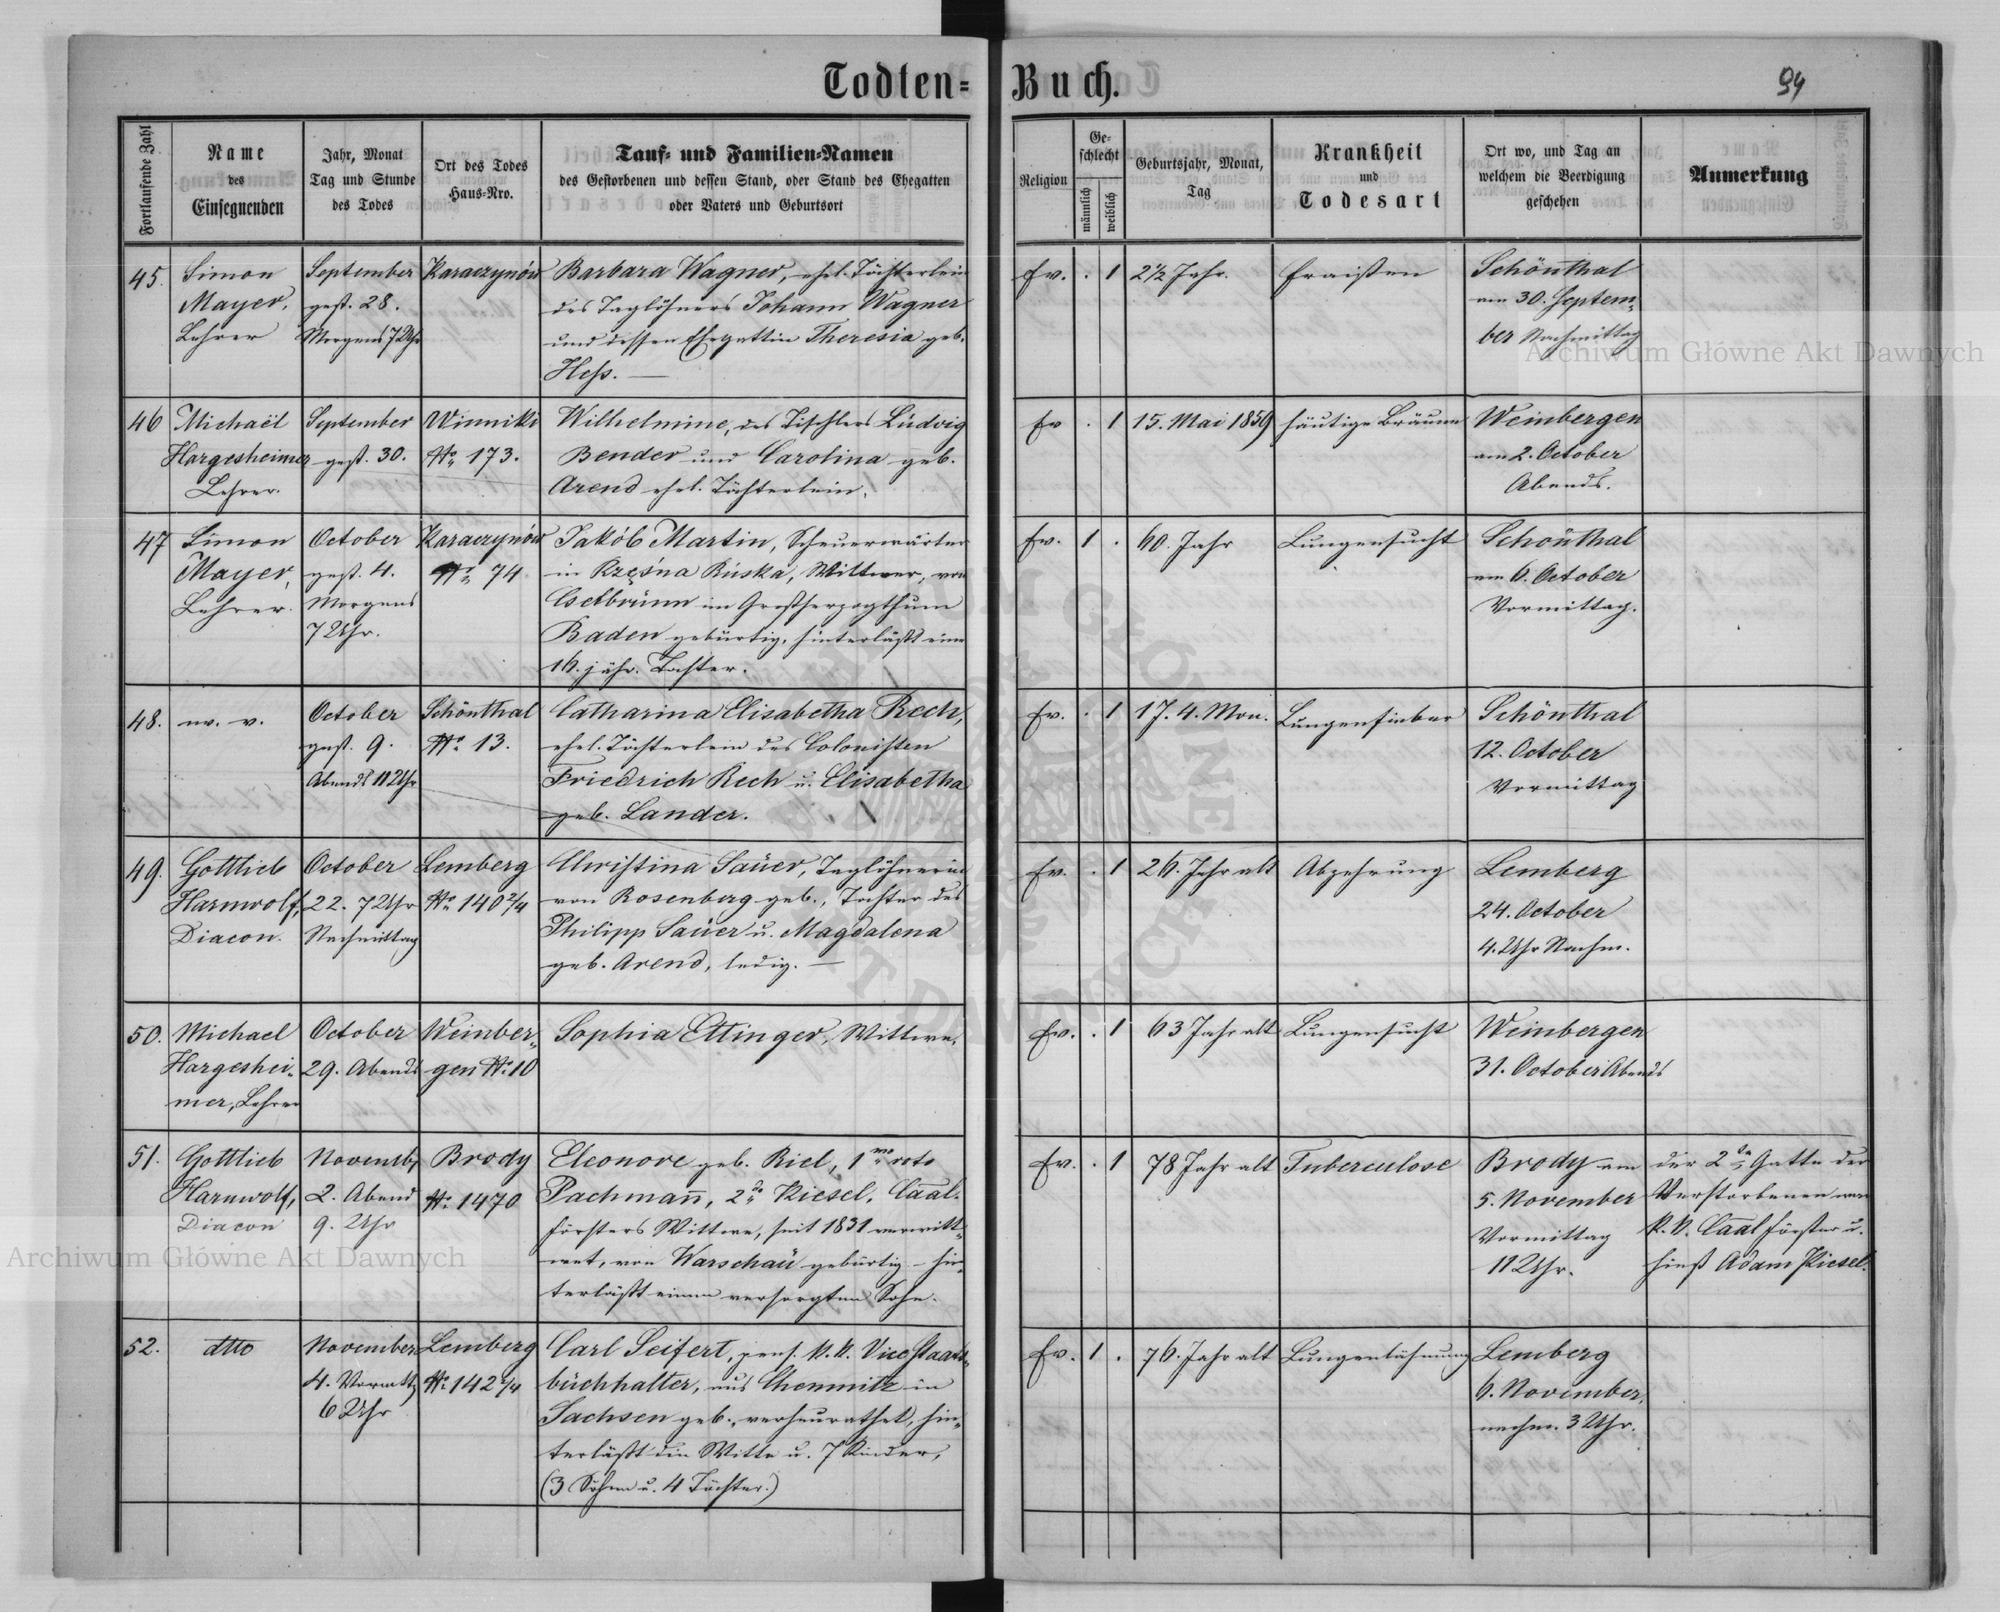 Todten-Buch.
94
Fortlaufende Zahl
Name
des
Einsegnenden
Jahr, Monat
Tag und Stunde
des Todes
Ort des Todes
Haus-Nro.
Tauf- und Familien-Namen
des Gestorbenen und dessen Stand, oder Stand des Ehegatten
oder Vaters und Geburtsort
Religion
Ge-
schlecht
männlich
weiblich
Geburtsjahr, Monat,
Tag
Krankheit
und
Todesart
Ort wo, und Tag an
welchem die Beerdigung
geschehen
Anmerkung
45.
Simon
Mayer,
Lehrer
September
gest. 28.
Morgens 7 Uhr
Karaczynów
Barbara Wagner, ehel. Töchterlein
des Taglöhners Johann Wagner
und dessen Ehegattin Theresia geb.
Hess. —
Ev.
. 1
2½ Jahr.
Fraißen
Schönthal
am 30. Septem-
ber Nachmittag
46
Michaël
Hargesheimer
Lehrer.
September
gest. 30.
Winniki
No 173.
Wilhelmine, des Tischlers Ludwig
Bender und Carolina geb.
Arend ehel. Töchterlein.
Ev
. 1
15. Mai 1859
häutige Bräune
Weinbergen
am 2. October
Abends.
47
Simon
Mayer,
Lehrer.
October
gest. 4.
Morgens
7 Uhr.
Karaczynów
No 74
Jakób Martin, Scheuerwärter
in Rzęsna Ruska, Wittwer, von
im Großherzogthum
Baden gebürtig, hinterläßt eine
16. jähr. Tochter.
Ev.
1 .
60. Jahr
Lungensucht
Schönthal
am 6. October
Vormittag.
48.
October
gest. 9.
Abends 11 Uhr
Schönthal
No 13.
Catharina Elisabetha Rech,
ehel. Töchterlein des Colonisten
Friedrich Rech u. Elisabetha
geb. Lander.
Ev.
. 1
17. 4. Mon.
Lungenfieber
Schönthal
12. October
Vormittag
49.
Gottlieb
Harnwolf,
Diacon.
October
22. 7 Uhr
Nachmittag
Lemberg
No 140 2/4
Christina Sauer, Taglöhnerin
von Rosenberg geb., Tochter des
Philipp Sauer u. Magdalena
geb. Arend, ledig. —
Ev.
. 1
26. Jahr alt
Abzehrung
Lemberg
24. October
4. Uhr Nachm.
50.
Michael
Hargeshei-
mer, Lehrer
October
29. Abends
Weinber-
gen No 10
Sophia Ettinger, Wittwe.
Ev.
. 1
63 Jahr alt
Lungensucht
Weinbergen
31. October Abends
51.
Gottlieb
Harnwolf,
Diacon
Novemb.
2. Abend
9. Uhr
Brody
No 1470
Eleonore geb. Riel, 1mo voto
Pachmañ, 2do Kiesel, Caal-
försters Wittwe, seit 1831 verwitt-
wet, von Warschau gebürtig – hin-
terläßt einen versorgten Sohn.
Ev.
. 1
78 Jahr alt
Tuberculose
Brody am
5. November
Vormittag
11 Uhr.
der 2te Gatte der
Verstorbenen war
k. k. Caalförster u.
hieß Adam Kiesel.
52.
dtto
November
4. Vormittg
6 Uhr
Lemberg
No 142 2/4
Carl Seifert, pens. k. k. Vice Staats-
buchhalter, aus Chemnitz in
Sachsen geb., verheurathet, hin-
terläßt die Witte u. 7 Kinder,
(3 Söhne u. 4 Töchter.)
Ev.
1 .
76. Jahr alt
Lungenlähmung
Lemberg
6. November,
nachm. 3 Uhr.
Archiwum Główne Akt Dawnych
Archiwum Główne Akt Dawnych